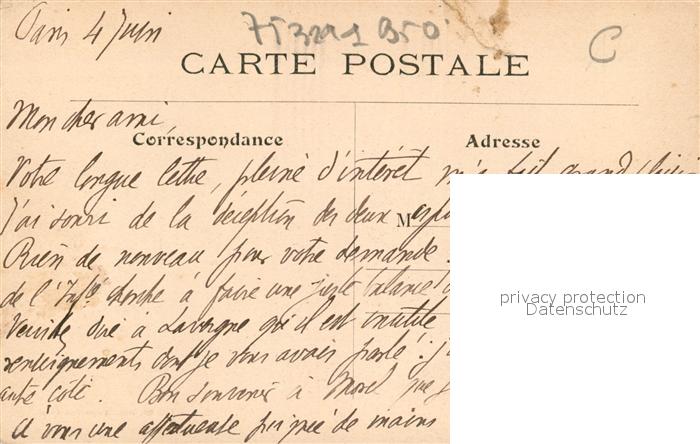 Paris 4 Juin
C
CARTE POSTALE
Mon cher ami,
Correspondance
Adresse
Votre longue lettre, pleine d'intérêt m'a fait grand plaisir
J'ai souri de la déception des deux
M
Rien de nouveau pour votre demande.
de l' cherche à faire une juste balance
Veuillez dire à Lavergne qu'il est inutile
renseignements dont je vous avais parlé : j'
autre côté. Bon souvenir à Morel que j
A vous une affectueuse poignée de mains
privacy protection
Datenschutz